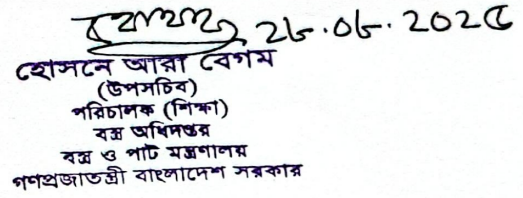 ২৮.০৮.২০২৫
হোসনে আরা বেগম
(উপসচিব)
পরিচালক (শিক্ষা)
বস্ত্র অধিদপ্তর
বস্ত্র ও পাট মন্ত্রণালয়
গণপ্রজাতন্ত্রী বাংলাদেশ সরকার